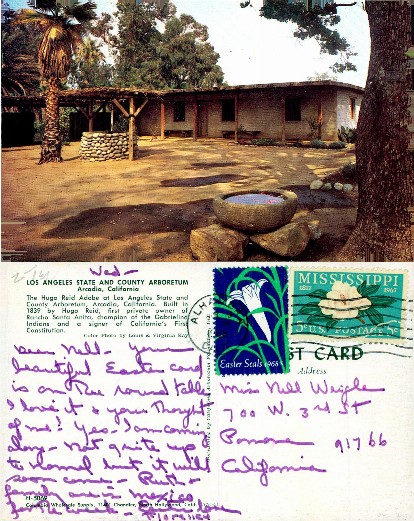 Wed-
LOS ANGELES STATE AND COUNTY ARBORETUM
Arcadia, California
The Hugo Reid Adobe at Los Angeles State and
County Arboretum, Arcadia, California. Built in
1839 by Hugo Reid, first private owner of
Rancho Santa Anita, champion of the Gabrielino
Indians and a signer of California's First
Constitution.
Color Photo by Louis & Virginia Kay
Dear Nell - Your
beautiful Easter card
is on The mantel
I love it & your Thought
of me! Yes - I am coming
along - Not quite up
to normal but it will
soon come - Ruth
Mexico
H-5069
Wholesale Supply, Chandler, North Hollywood, Calif.
ALH
Easter Seals 1968
MISSISSIPPI
1817 1967
U.S. POSTAGE 5c
ST CARD
Address
Miss Nell Weigle
700 W. 3rd St
Pomona
91766
California